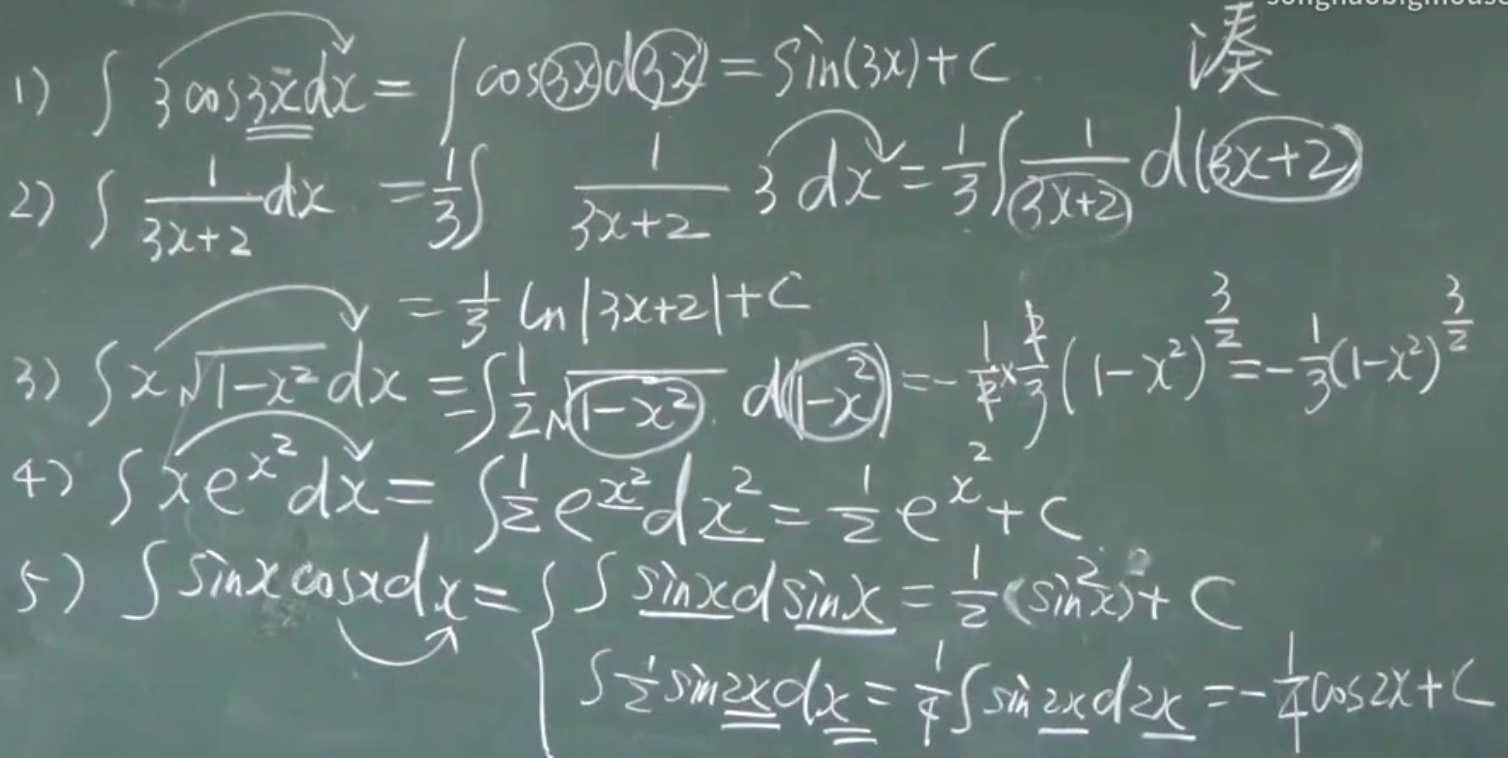 songhaobigmouse
凑
1) ∫ 3 cos3x dx = ∫ cos3x d3x = Sin(3x) + C
2) ∫ 1/(3x+2) dx = 1/3 ∫ 1/(3x+2) 3 dx = 1/3 ∫ 1/(3x+2) d(3x+2)
= 1/3 ln|3x+2| + C
3) ∫ x√(1-x²) dx = -∫ 1/2 √(1-x²) d(1-x²) = -1/2 × 2/3 (1-x²)^(3/2) = -1/3 (1-x²)^(3/2)
4) ∫ x e^(x²) dx = ∫ 1/2 e^(x²) dx² = 1/2 e^(x²) + C
5) ∫ sinx cosx dx = { ∫ sinx d sinx = 1/2 (sin²x) + C
∫ 1/2 sin2x dx = 1/4 ∫ sin 2x d 2x = -1/4 cos2x + C